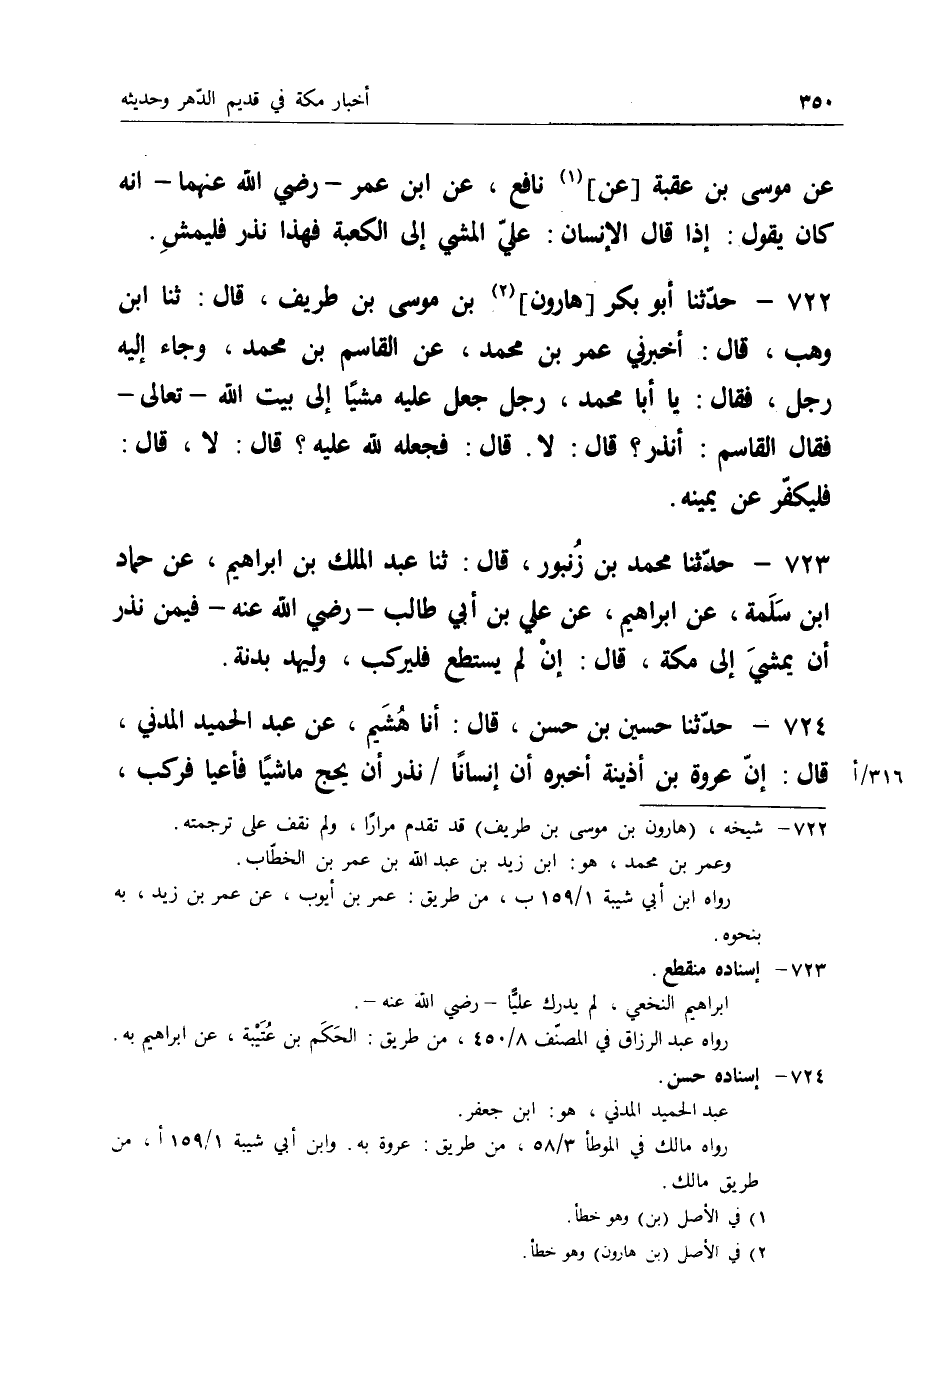 ٣٥٠ أخبار مكة في قديم الدّهر وحديثه
عن موسى بن عقبة [عن](١) نافع ، عن ابن عمر – رضي الله عنهما – انه
كان يقول : إذا قال الإنسان : عليّ المشي إلى الكعبة فهذا نذر فليمشِ .
٧٢٢ – حدّثنا أبو بكر [هارون](٢) بن موسى بن طريف ، قال : ثنا ابن
وهب ، قال : أخبرني عمر بن محمد ، عن القاسم بن محمد ، وجاء إليه
رجل ، فقال : يا أبا محمد ، رجل جعل عليه مشيًا إلى بيت الله – تعالى –
فقال القاسم : أنذر ؟ قال : لا . قال : فجعله لله عليه ؟ قال : لا ، قال :
فليكفّر عن يمينه .
٧٢٣ – حدّثنا محمد بن زُنبور ، قال : ثنا عبد الملك بن ابراهيم ، عن حماد
ابن سَلَمة ، عن ابراهيم ، عن علي بن أبي طالب – رضي الله عنه – فيمن نذر
أن يمشيَ إلى مكة ، قال : إنْ لم يستطع فليركب ، وليهد بدنة .
٧٢٤ – حدّثنا حسين بن حسن ، قال : أنا هُشَيم ، عن عبد الحميد المدني ،
٣١٦/أ قال : إنّ عروة بن أذينة أخبره أن إنسانًا / نذر أن يحج ماشيًا فأعيا فركب ،
٧٢٢ – شيخه ، (هارون بن موسى بن طريف) قد تقدم مرارًا ، ولم نقف على ترجمته .
وعمر بن محمد ، هو : ابن زيد بن عبد الله بن عمر بن الخطّاب .
رواه ابن أبي شيبة ١٥٩/١ ب ، من طريق : عمر بن أيوب ، عن عمر بن زيد ، به
بنحوه .
٧٢٣ – إسناده منقطع .
ابراهيم النخعي ، لم يدرك عليًّا – رضي الله عنه – .
رواه عبد الرزاق في المصنّف ٤٥٠/٨ ، من طريق : الحَكَم بن عُتَيْبة ، عن ابراهيم به .
٧٢٤ – إسناده حسن .
عبد الحميد المدني ، هو : ابن جعفر .
رواه مالك في الموطأ ٥٨/٣ ، من طريق : عروة به . وابن أبي شيبة ١٥٩/١ أ ، من
طريق مالك .
١) في الأصل (بن) وهو خطأ .
٢) في الأصل (بن هارون) وهو خطأ .